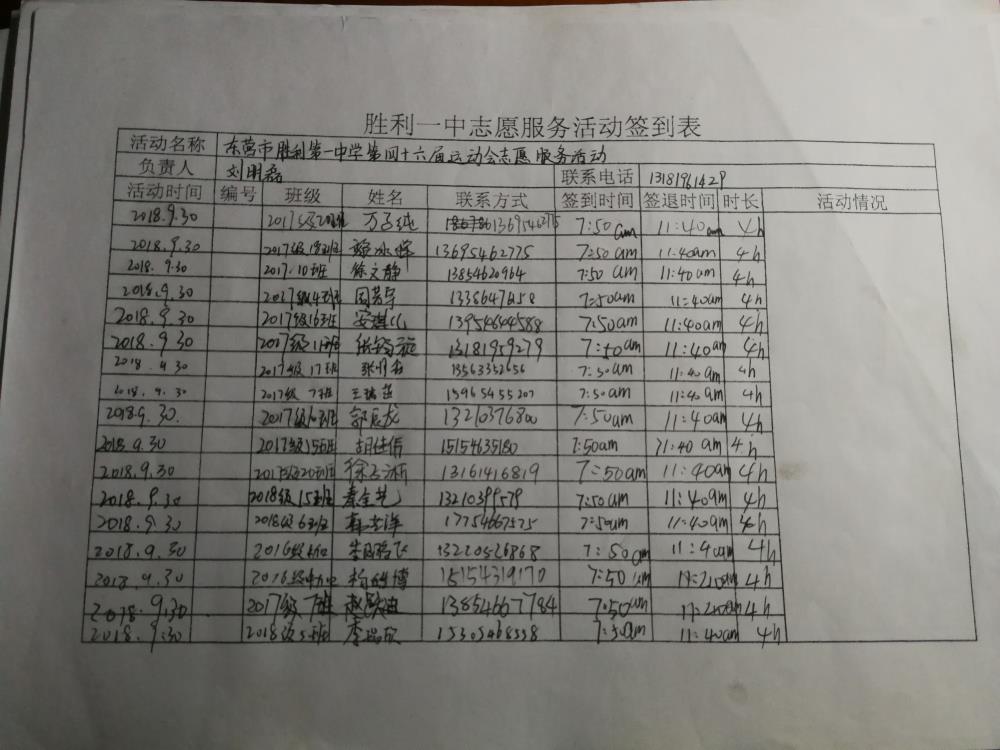 胜利一中志愿服务活动签到表
活动名称 东营市胜利第一中学第四十六届运动会志愿服务活动
负责人 刘明磊 联系电话 13181961429
活动时间 编号 班级 姓名 联系方式 签到时间 签退时间 时长 活动情况
2018.9.30 2017级 万子纯 13695462775 7:50am 11:40am 4h
2018.9.30 2017级18班 13695462775 7:50am 11:40am 4h
2018.9.30 2017.10班 徐文静 13854620964 7:50am 11:40am 4h
2018.9.30 2017级4班 周芸宇 7:50am 11:40am 4h
2018.9.30 2017级16班 安琪儿 13954644588 7:50am 11:40am 4h
2018.9.30 2017级11班 13181959279 7:50am 11:40am 4h
2018.9.30 2017级17班 13563352656 7:50am 11:40am 4h
2018.9.30 2017级7班 15965455207 7:50am 11:40am 4h
2018.9.30. 2017级 郭辰龙 13210376800 7:50am 11:40am 4h
2018.9.30 2017级15班 胡佳信 15154635180 7:50am 11:40am 4h
2018.9.30 20班 13161416819 7:50am 11:40am 4h
2018.9.30 2018级15班 秦金艺 13210399579 7:50am 11:40am 4h
2018.9.30 2018级6班 17754667575 7:50am 11:40am 4h
2018.9.30 2016级 13220526868 7:50am 11:40am 4h
2018.9.30 2016级 15154319170 7:50 4h
2018.9.30 2017级7班 13854667784 7:50am 4h
2018.9.30 2018级5班 李瑞欣 15305468558 7:50am 11:40am 4h